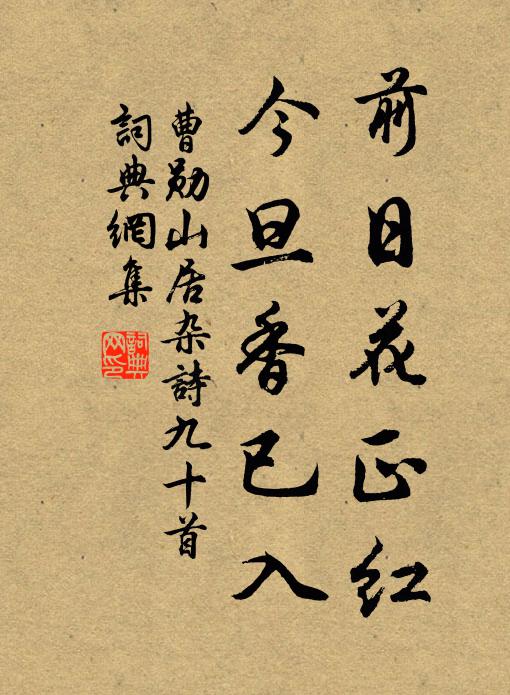 前日花正紅
今旦香已入
曹勛山居杂詩九十首
詞典網集
詞典網印